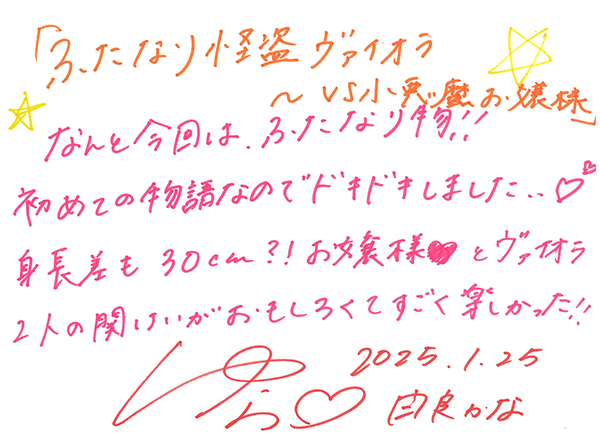 「ふたなり怪盗ヴァイオラ
～VS小悪魔お嬢様」
なんと今回は、ふたなり物!!
初めての物語なのでドキドキしました..♡
身長差も30cm?!お嬢様♥とヴァイオラ
2人の関けいがおもしろくてすごく楽しかった!!
ゆら♡ 2025.1.25
由良かな